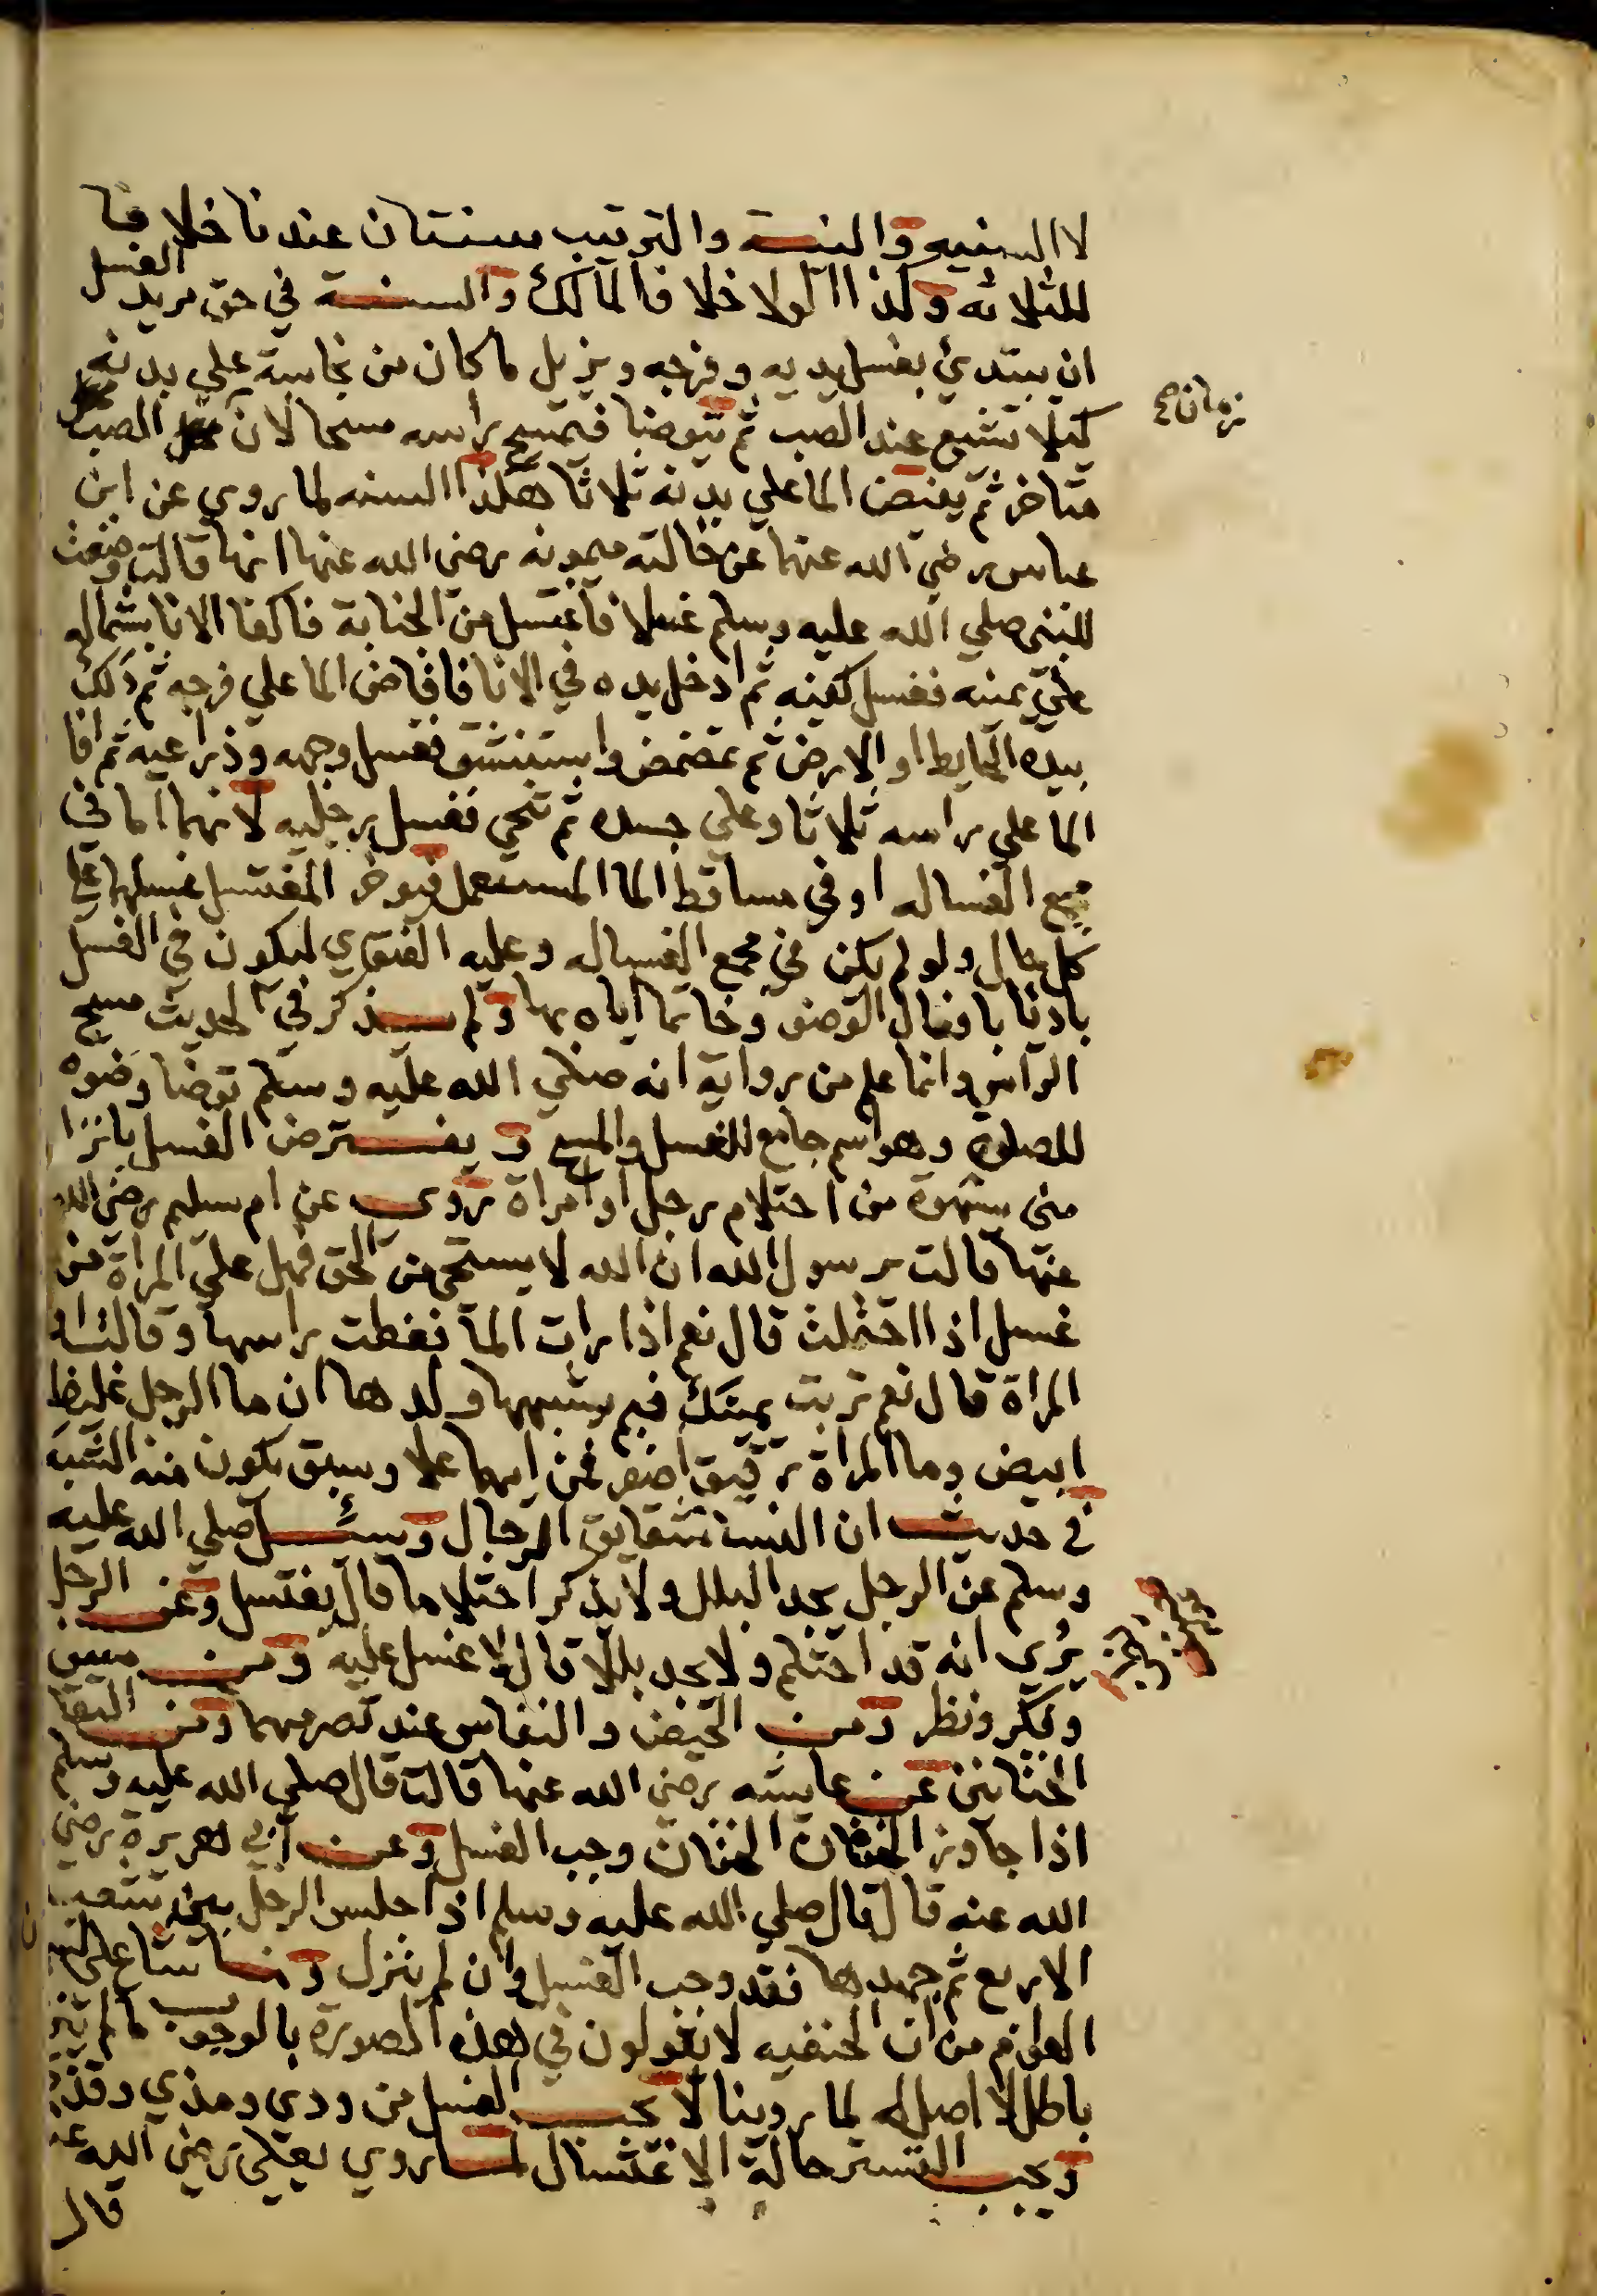 لا السنيه والنية والترتيب سنتان عندنا خلافا
للثلاثه وكذا الولا خلافا لمالك والسنة في حق مريد الغسل
ان يبتدئ بغسل يديه وفرجه ويزيل ما كان من نجاسة علي بدنه
كيلا تشيع عند الصب ثم يتوضا فيمسح راسه مسحا لان الصب
زمان صح
متاخر ثم يفيض الما علي بدنه ثلاثا هكذا السنه لما روي عن ابن
عباس رضي الله عنهما عن خالته ميمونه رضي الله عنها انها قالت وضعت
للنبي صلي الله عليه وسلم غسلا فاغتسل من الجنابة فاكفا الانا بشماله
علي يمينه فغسل كفيه ثم ادخل يده في الانا فافاض الما علي فرجه ثم دلك
بيده الحايط او الارض ثم تمضمض واستنشق فغسل وجهه وذراعيه ثم افا
الما علي راسه ثلاثا وعلي جسده ثم تنحي فغسل رجليه لانهما اما في
مجمع الغساله او في مساقط الما المستعمل فيوخر المغتسل غسلهما علي
كل حال ولو لم يكن في مجمع الغساله وعليه الفتوي ليكون في الغسل
باديا بافعال الوضو وخاتما اياه بها ولم يذكر في الحديث مسح
الراس وانما علم من رواية انه صلي الله عليه وسلم توضا وضوه
للصلوة وهو اسم جامع للغسل والمسح ويفترض الغسل بانزا
مني بشهوة من احتلام رجل او امراة روي عن ام سليم رضي الله
عنها قالت يرسول الله ان الله لا يستحي من الحق فهل علي المراة من
غسل اذا احتلمت قال نعم اذا رات الما فغطت راسها وقالت او
المراة قال نعم تربت يمينك فبم يشبهها ولدها ان ما الرجل غليظ
ابيض وما المراة رقيق اصفر فمن ايهما علا وسبق يكون منه الشبه
في حديث ان النسا شقايق الرجال وسئل صلي الله عليه
وسلم عن الرجل يجد البلل ولا يذكر احتلاما قال يغتسل وعن الرجل
يري انه قد احتلم ولا يجد بللا قال لا غسل عليه ومن مس
وفكر ونظر ومن الحيض والنفاس عند تصرمهما ومن التقا
الختانين عن عايشه رضي الله عنها قالت قال صلي الله عليه وسلم
اذا جاوز الختان الختان وجب الغسل وعن ابي هريرة رضي
الله عنه قال قال صلي الله عليه وسلم اذا جلس الرجل بين شعب
الاربع ثم جهدها فقد وجب الغسل وان لم ينزل وما شاع علي
العوام من ان الحنفيه لا يقولون في هذه الصورة بالوجوب ما لم ينز
باطل لا اصل له لما روينا لا يجب الغسل من ودي ومذي وقذ
ويجب التستر حالة الاغتسال لما روي يعلي رضي الله عنه
قال